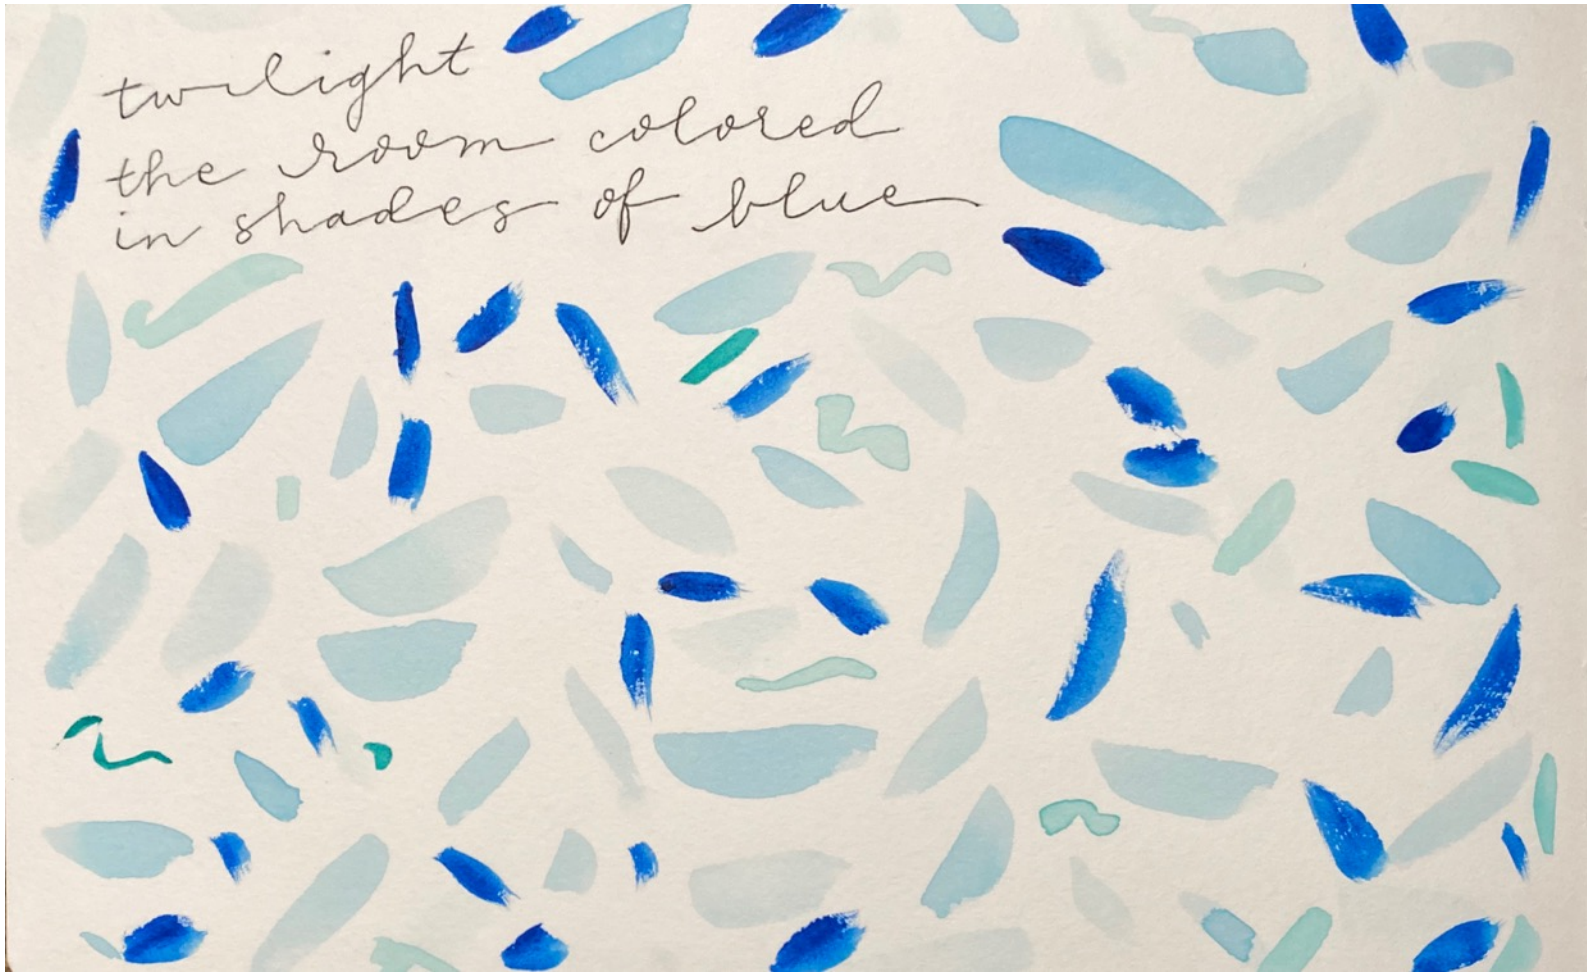 twilight
the room colored
in shades of blue